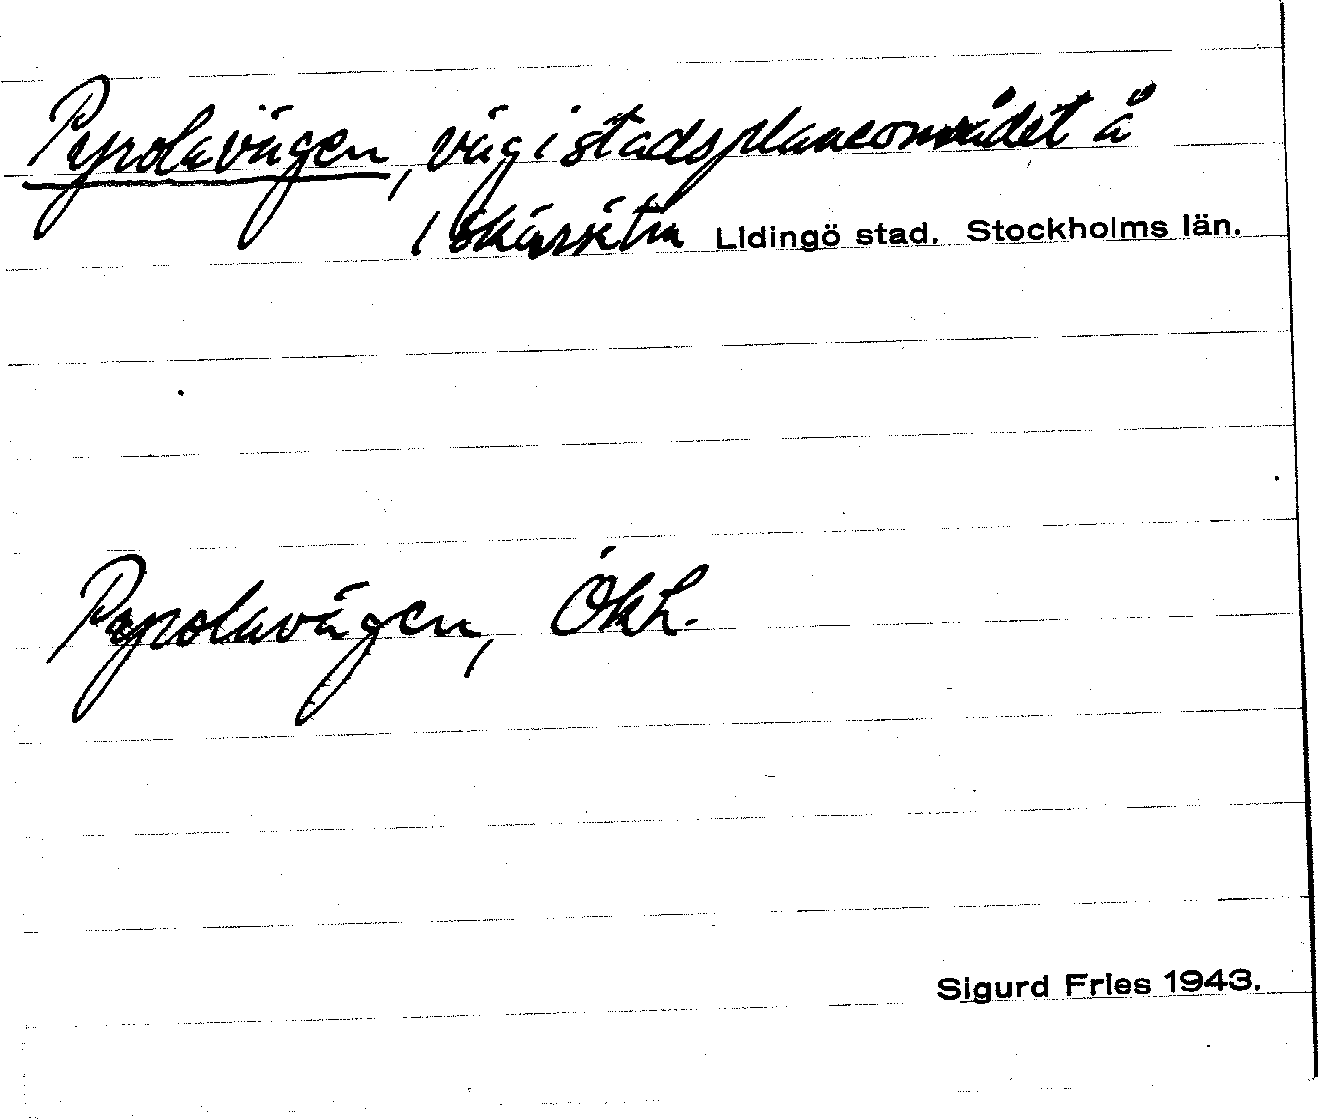 Pyrolavägen, väg i stadsplaneområdet å
Skärsätra Lidingö stad. Stockholms län.
Pyrolavägen, ÖkL.
Sigurd Fries 1943.